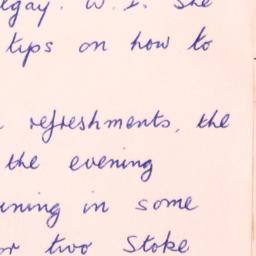 W. I. She
tips on how to
refreshments, the
the evening
in some
two Stoke